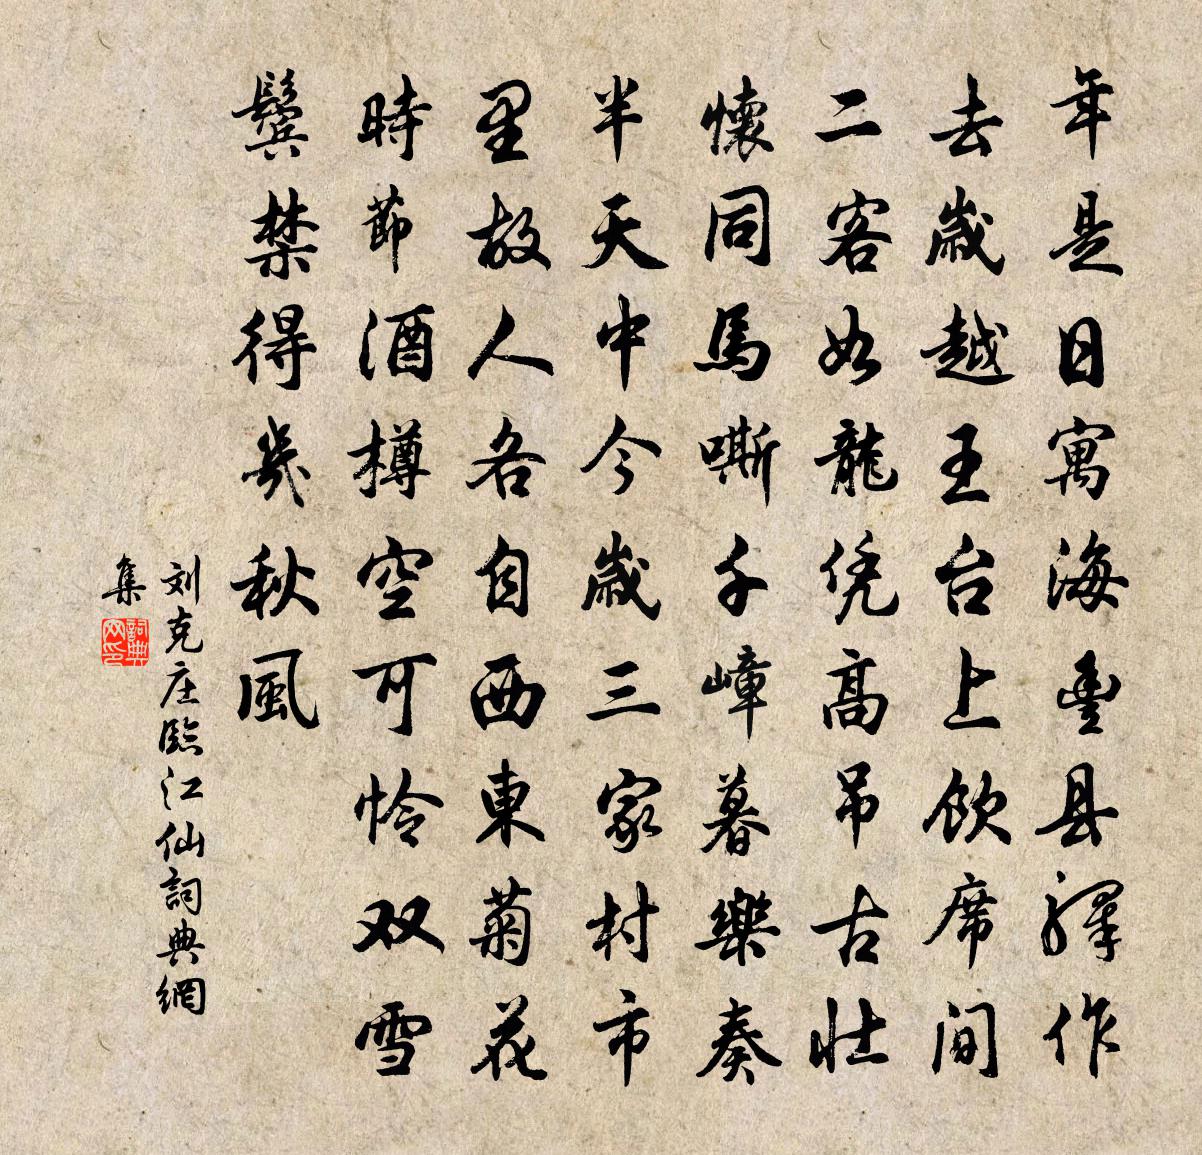 年是日寓海豊县驛作
去歲越王台上飲席間
二客如龍凭高吊古壯
懷同馬嘶千嶂暮樂奏
半天中今歲三家村市
里故人各自西東菊花
時節酒樽空可怜双雪
鬓禁得幾秋風
刘克庄臨江仙詞典網
集
詞典網印